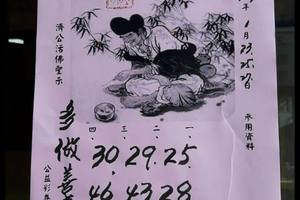 年 1月23.25.27日
承用資料
濟公活佛聖示
多做善
四、三、二、一、
30.29.25.
46 43 28
公益彩券